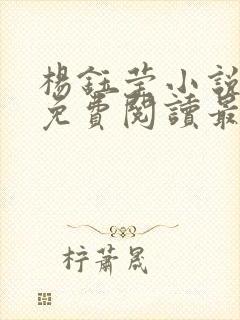 楊鈺瑩小說
免費閱讀最
柠蕭晟